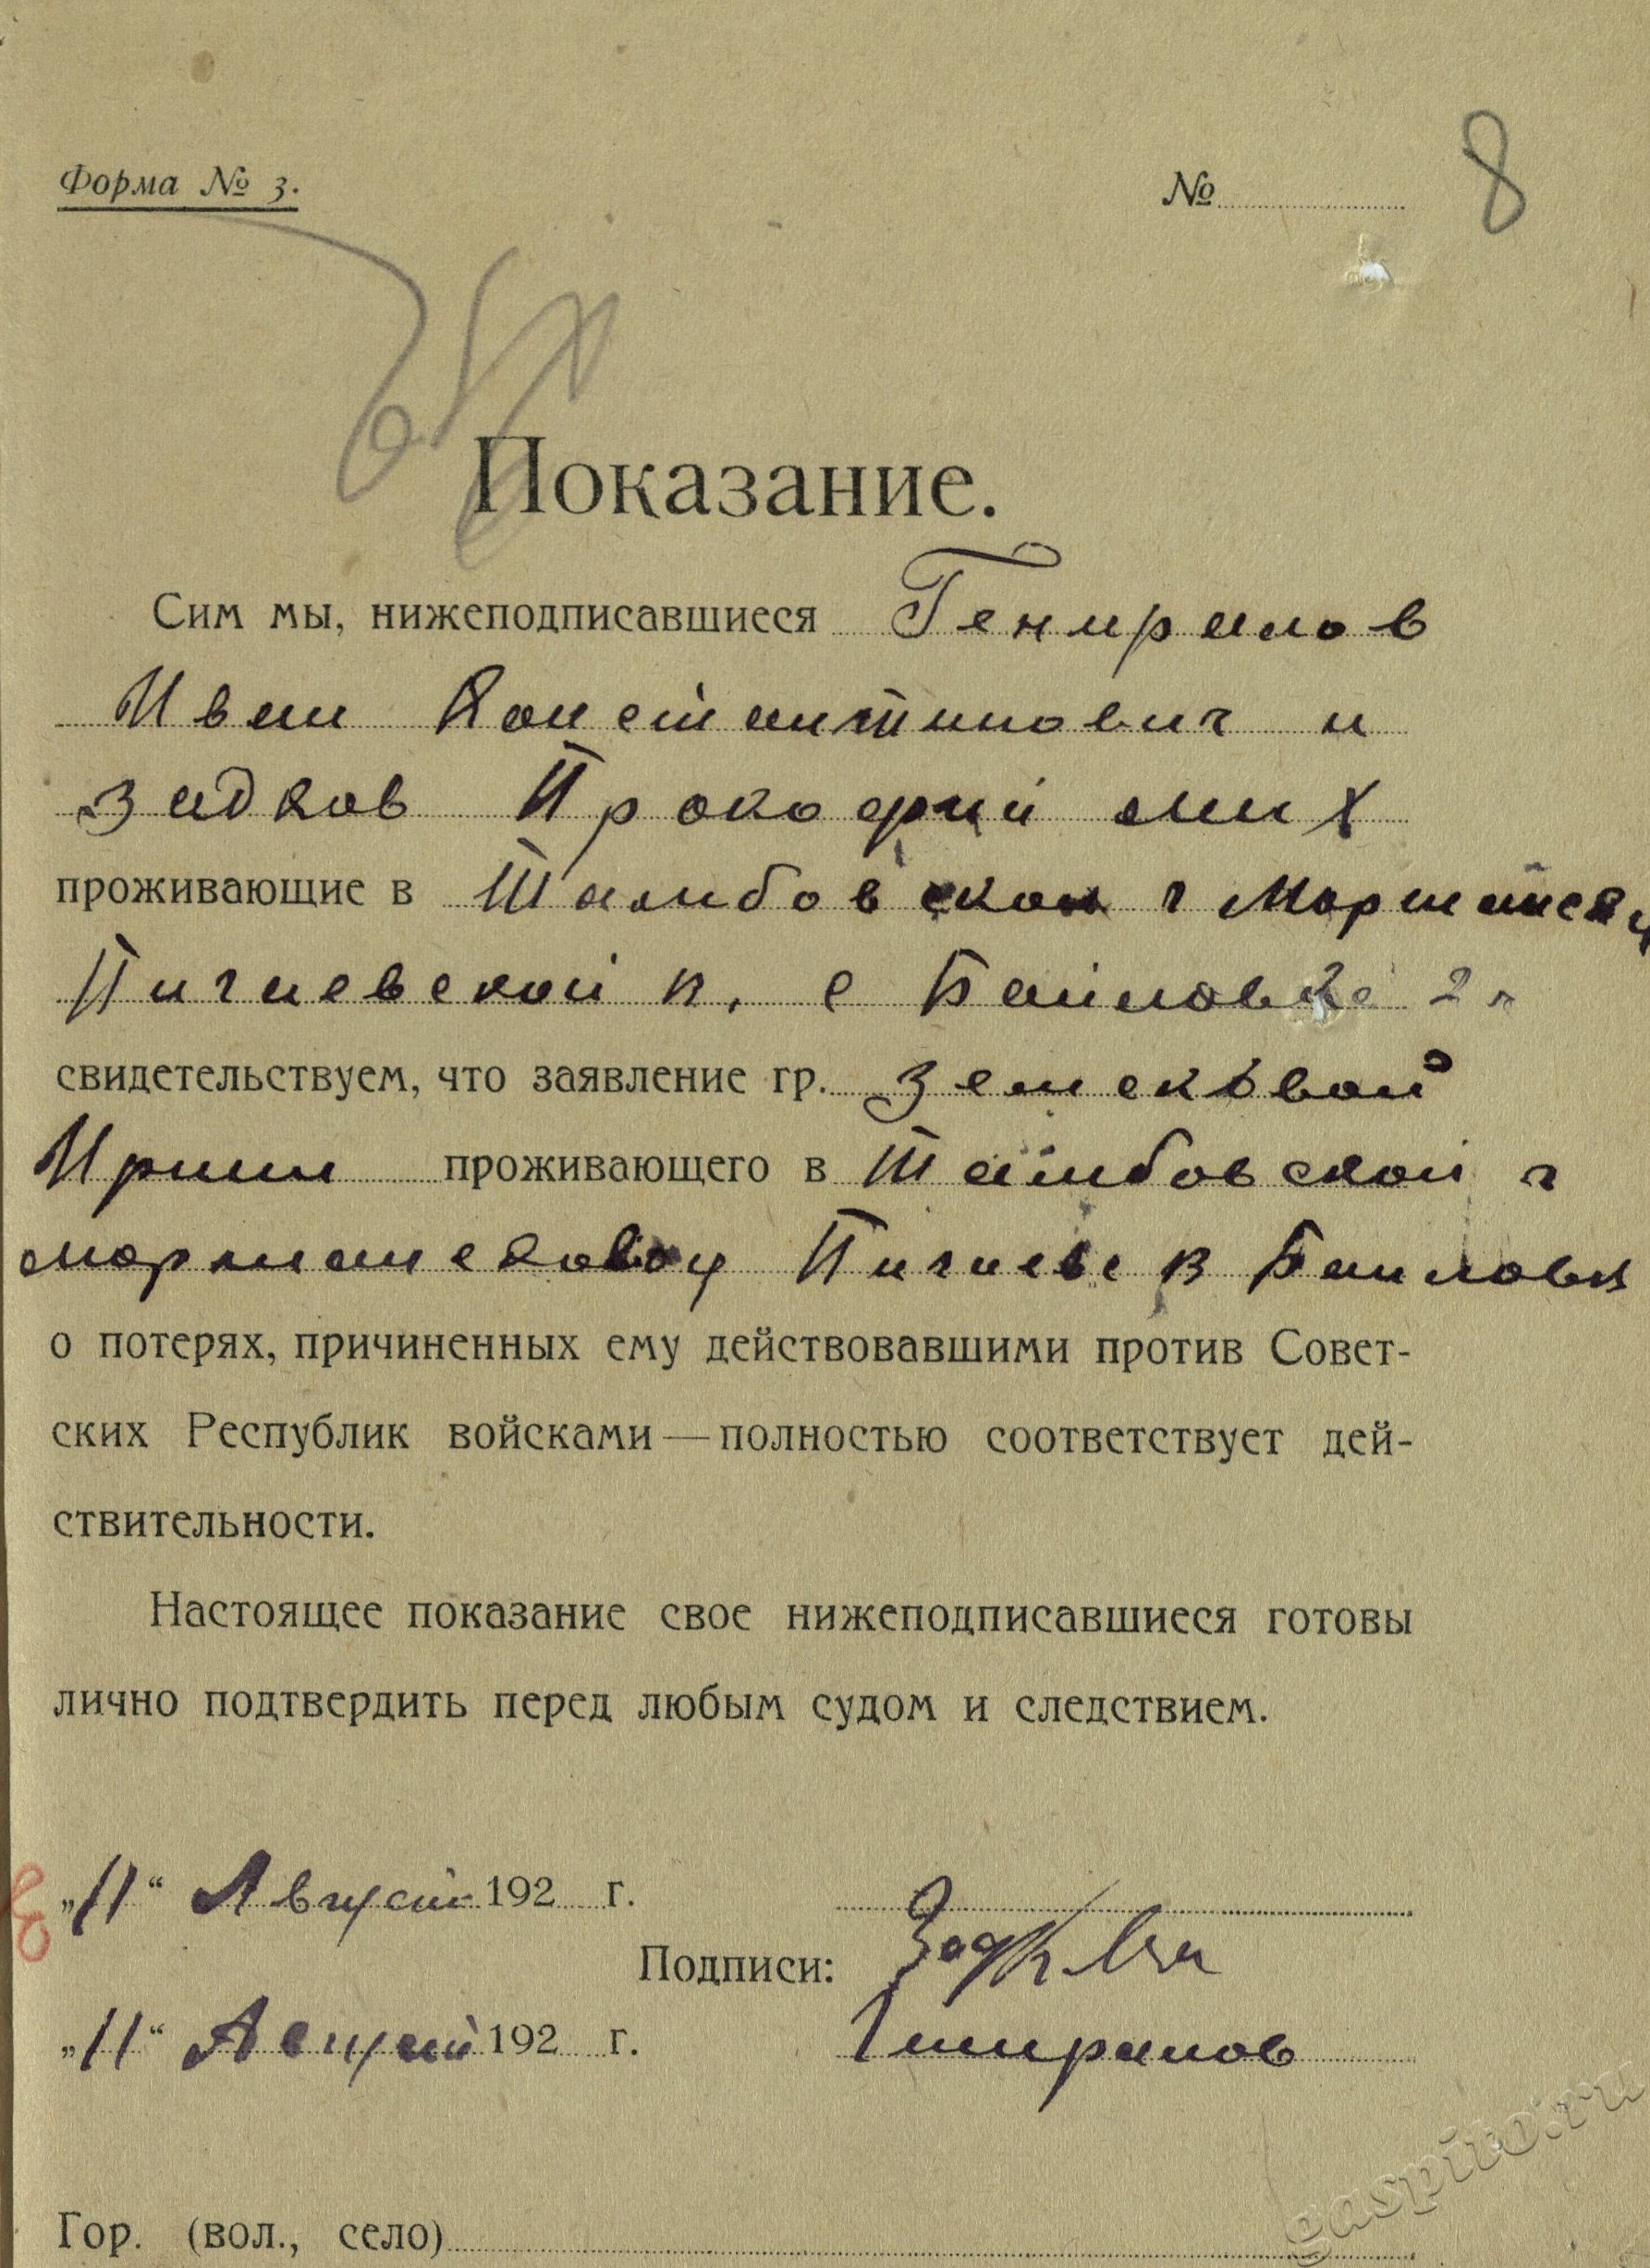 Форма № 3.
№ 8
Показание.
Сим мы, нижеподписавшиеся Гениралов
Иван Константинович и
Задков Прокофий мих
проживающие в Тамбовской г Моршанск у
Пичаевской в. с Байловке 2 
свидетельствуем, что заявление гр. Земсковой
Ирины проживающего в Тамбовской г
моршансково у Пичаевс в Байловки
о потерях, причиненных ему действовавшими против Совет-
ских Республик войсками — полностью соответствует дей-
ствительности.
Настоящее показание свое нижеподписавшиеся готовы
лично подтвердить перед любым судом и следствием.
„11“ Август 192 г.
Подписи: Задков
„11“ Август 192 г. Гениралов
Гор. (вол., село)
gaspito.ru